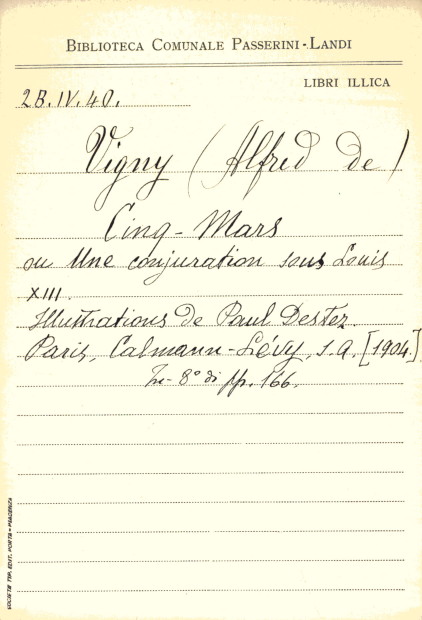 BIBLIOTECA COMUNALE PASSERINI-LANDI
LIBRI ILLICA
2B.IV.40.
Vigny (Alfred de)
Cinq-Mars
ou Une conjuration sous Louis
XIII.
Illustrations de Paul Destez.
Paris, Calmann-Lévy, s.a. [1904.]
In-8° di pp. 166.
SOCIETÀ TIP. EDIT. PORTA - PIACENZA